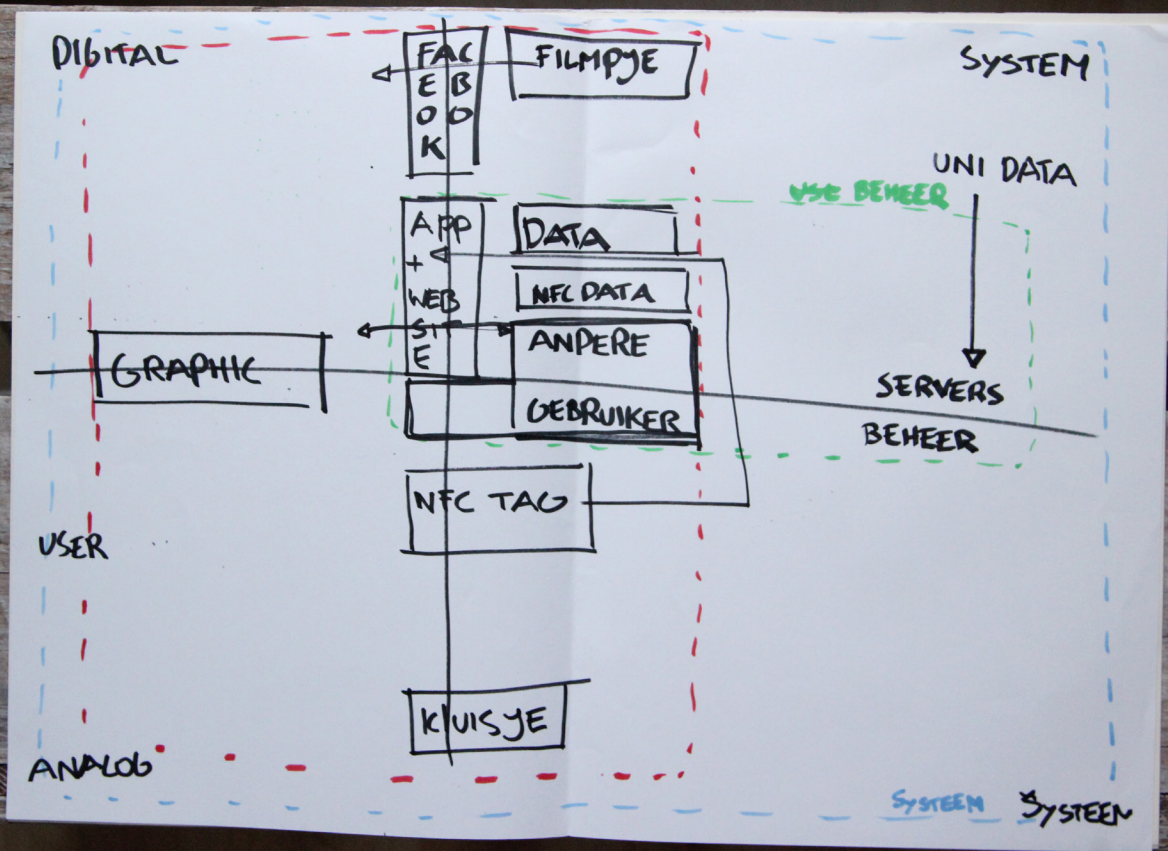 DIGITAL
FAC
E B
O O
K
FILMPJE
SYSTEM
UNI DATA
USE BEHEER
APP
+
WEB
SIT
E
DATA
NFC DATA
ANDERE
GEBRUIKER
GRAPHIC
SERVERS
BEHEER
NFC TAG
USER
KLUISJE
ANALOG
SYSTEEM
SYSTEEM